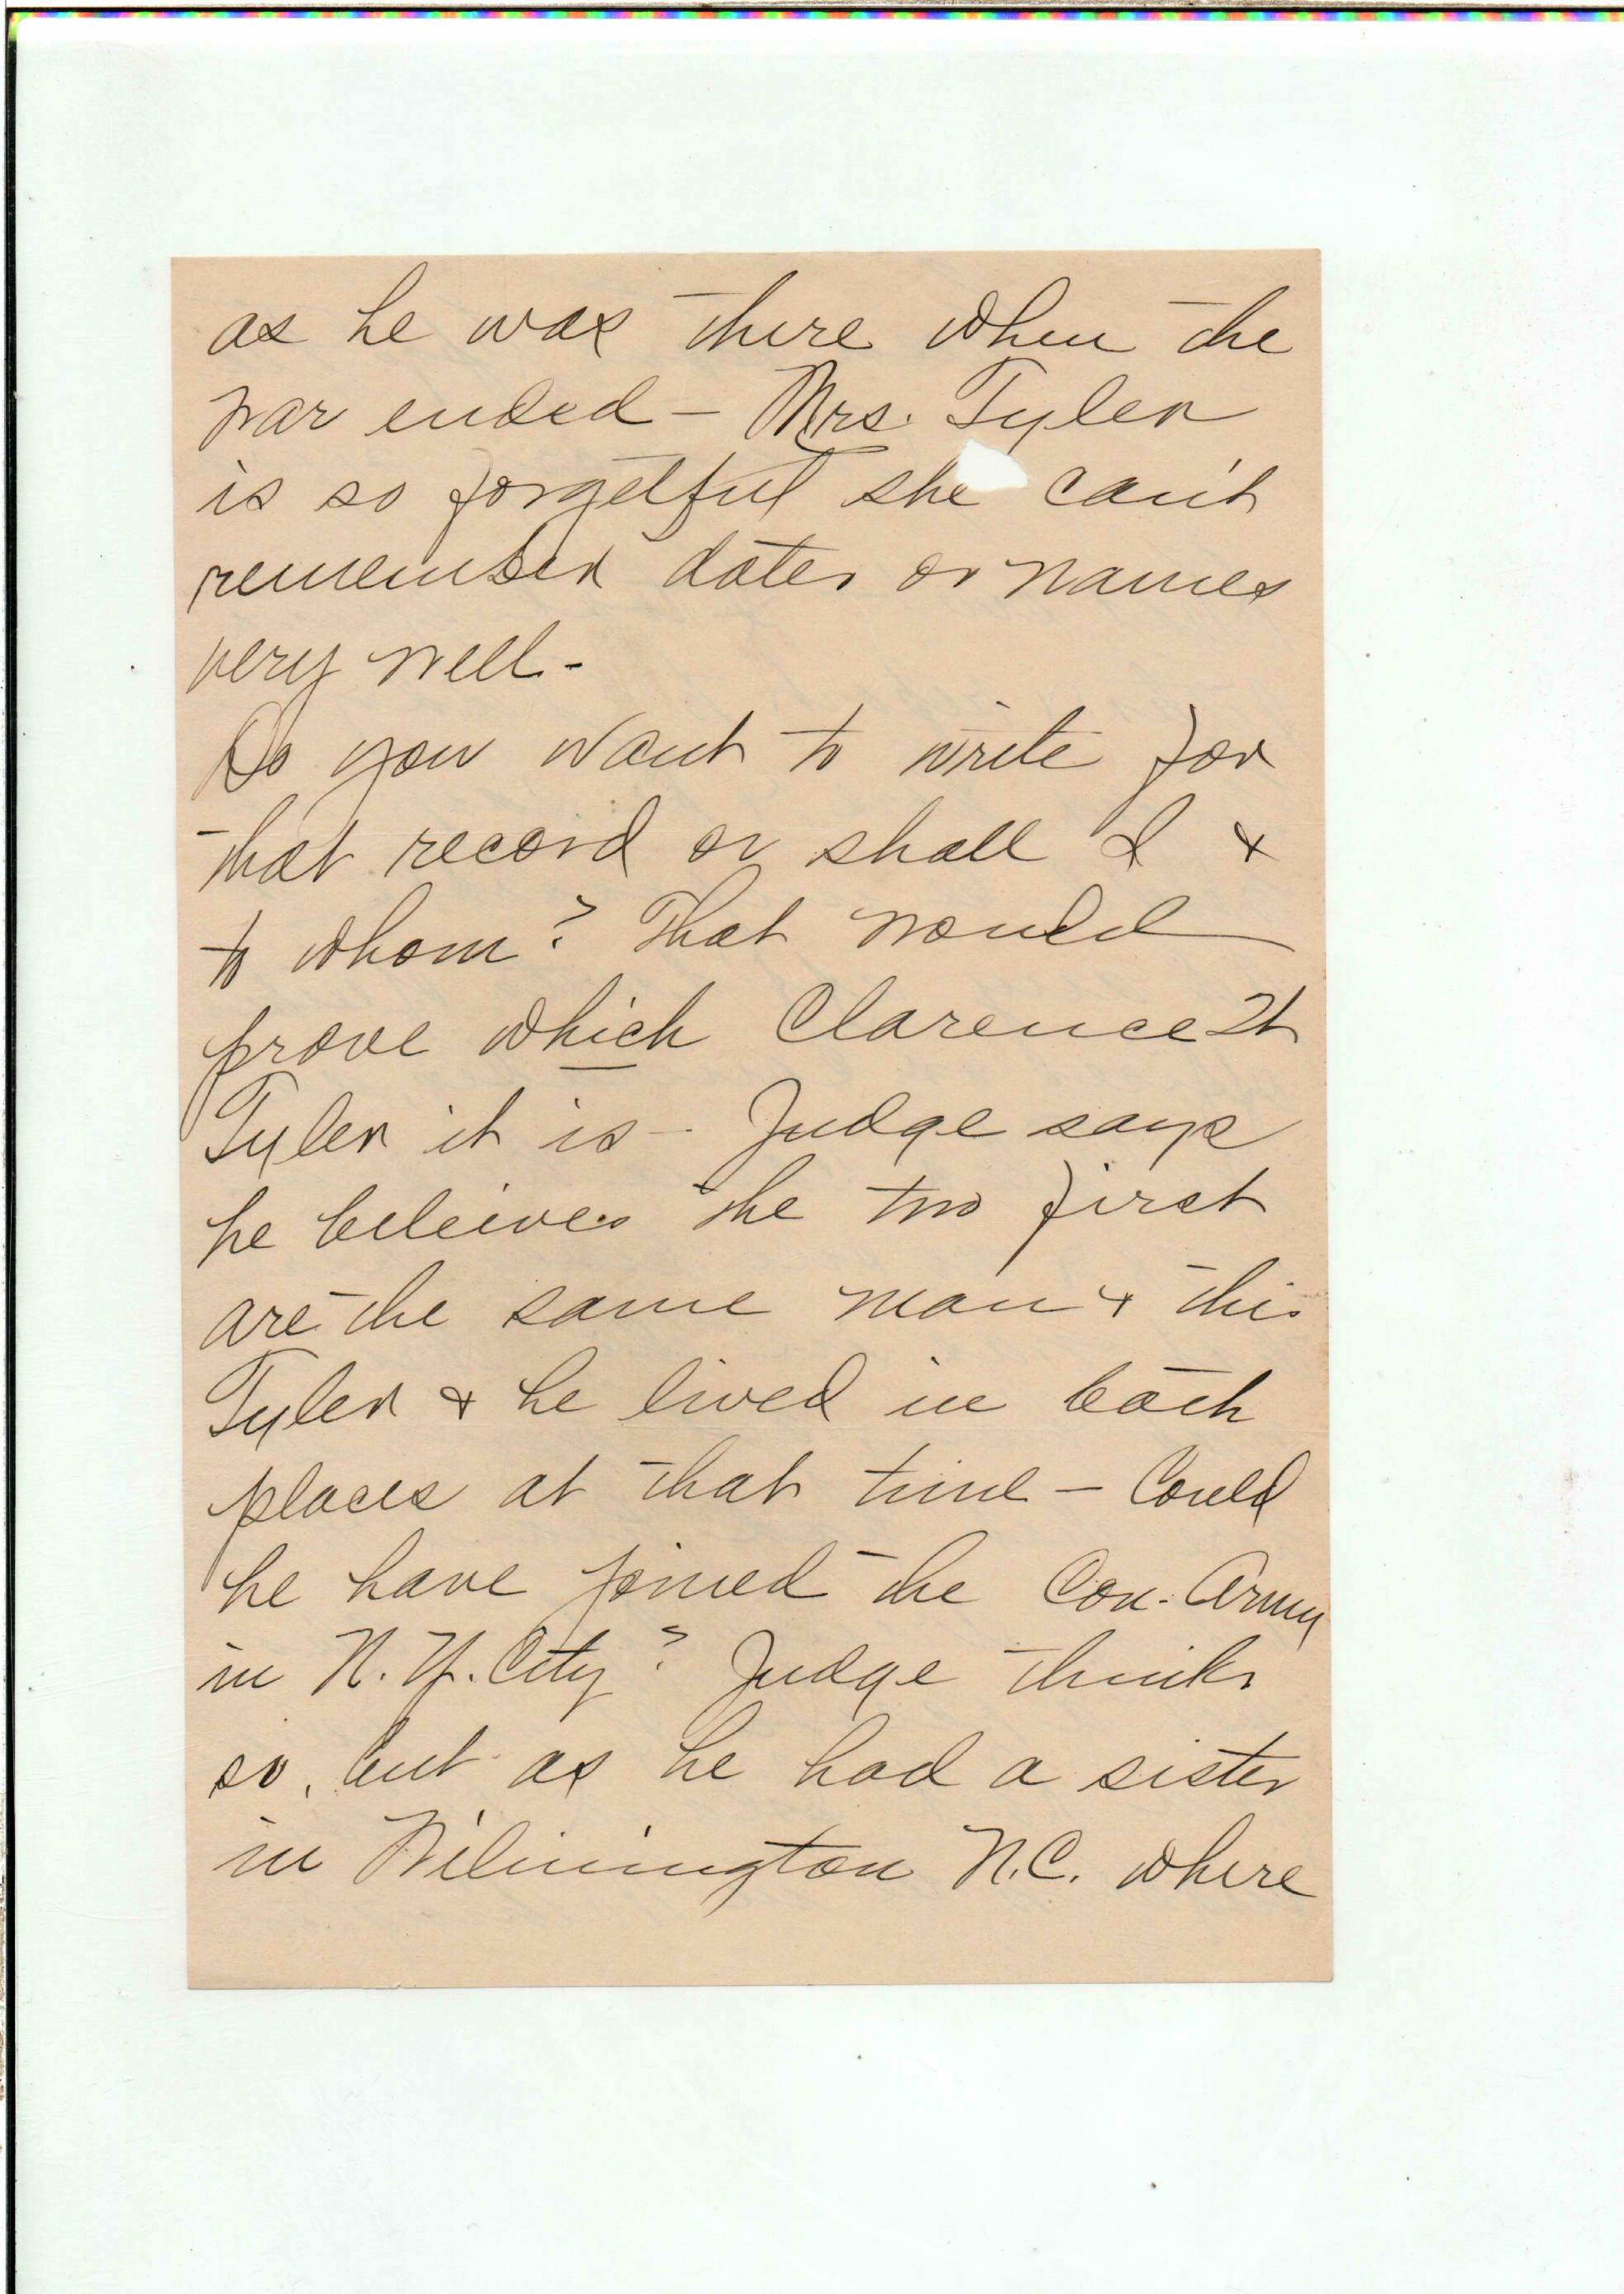 as he was there when the
war ended - Mrs. Tyler
is so forgetful she can't
remember dates or names
very well -
Do you want to write for
that record or shall I &
to whom? That would
prove which Clarence H
Tyler it is - Judge says
he beleives the two first
are the same man & this
Tyler & he lived in both
places at that time - Could
he have joined the Con. Army
in N.Y. City? Judge thinks
so, but as he had a sister
in Wilmington N.C. where